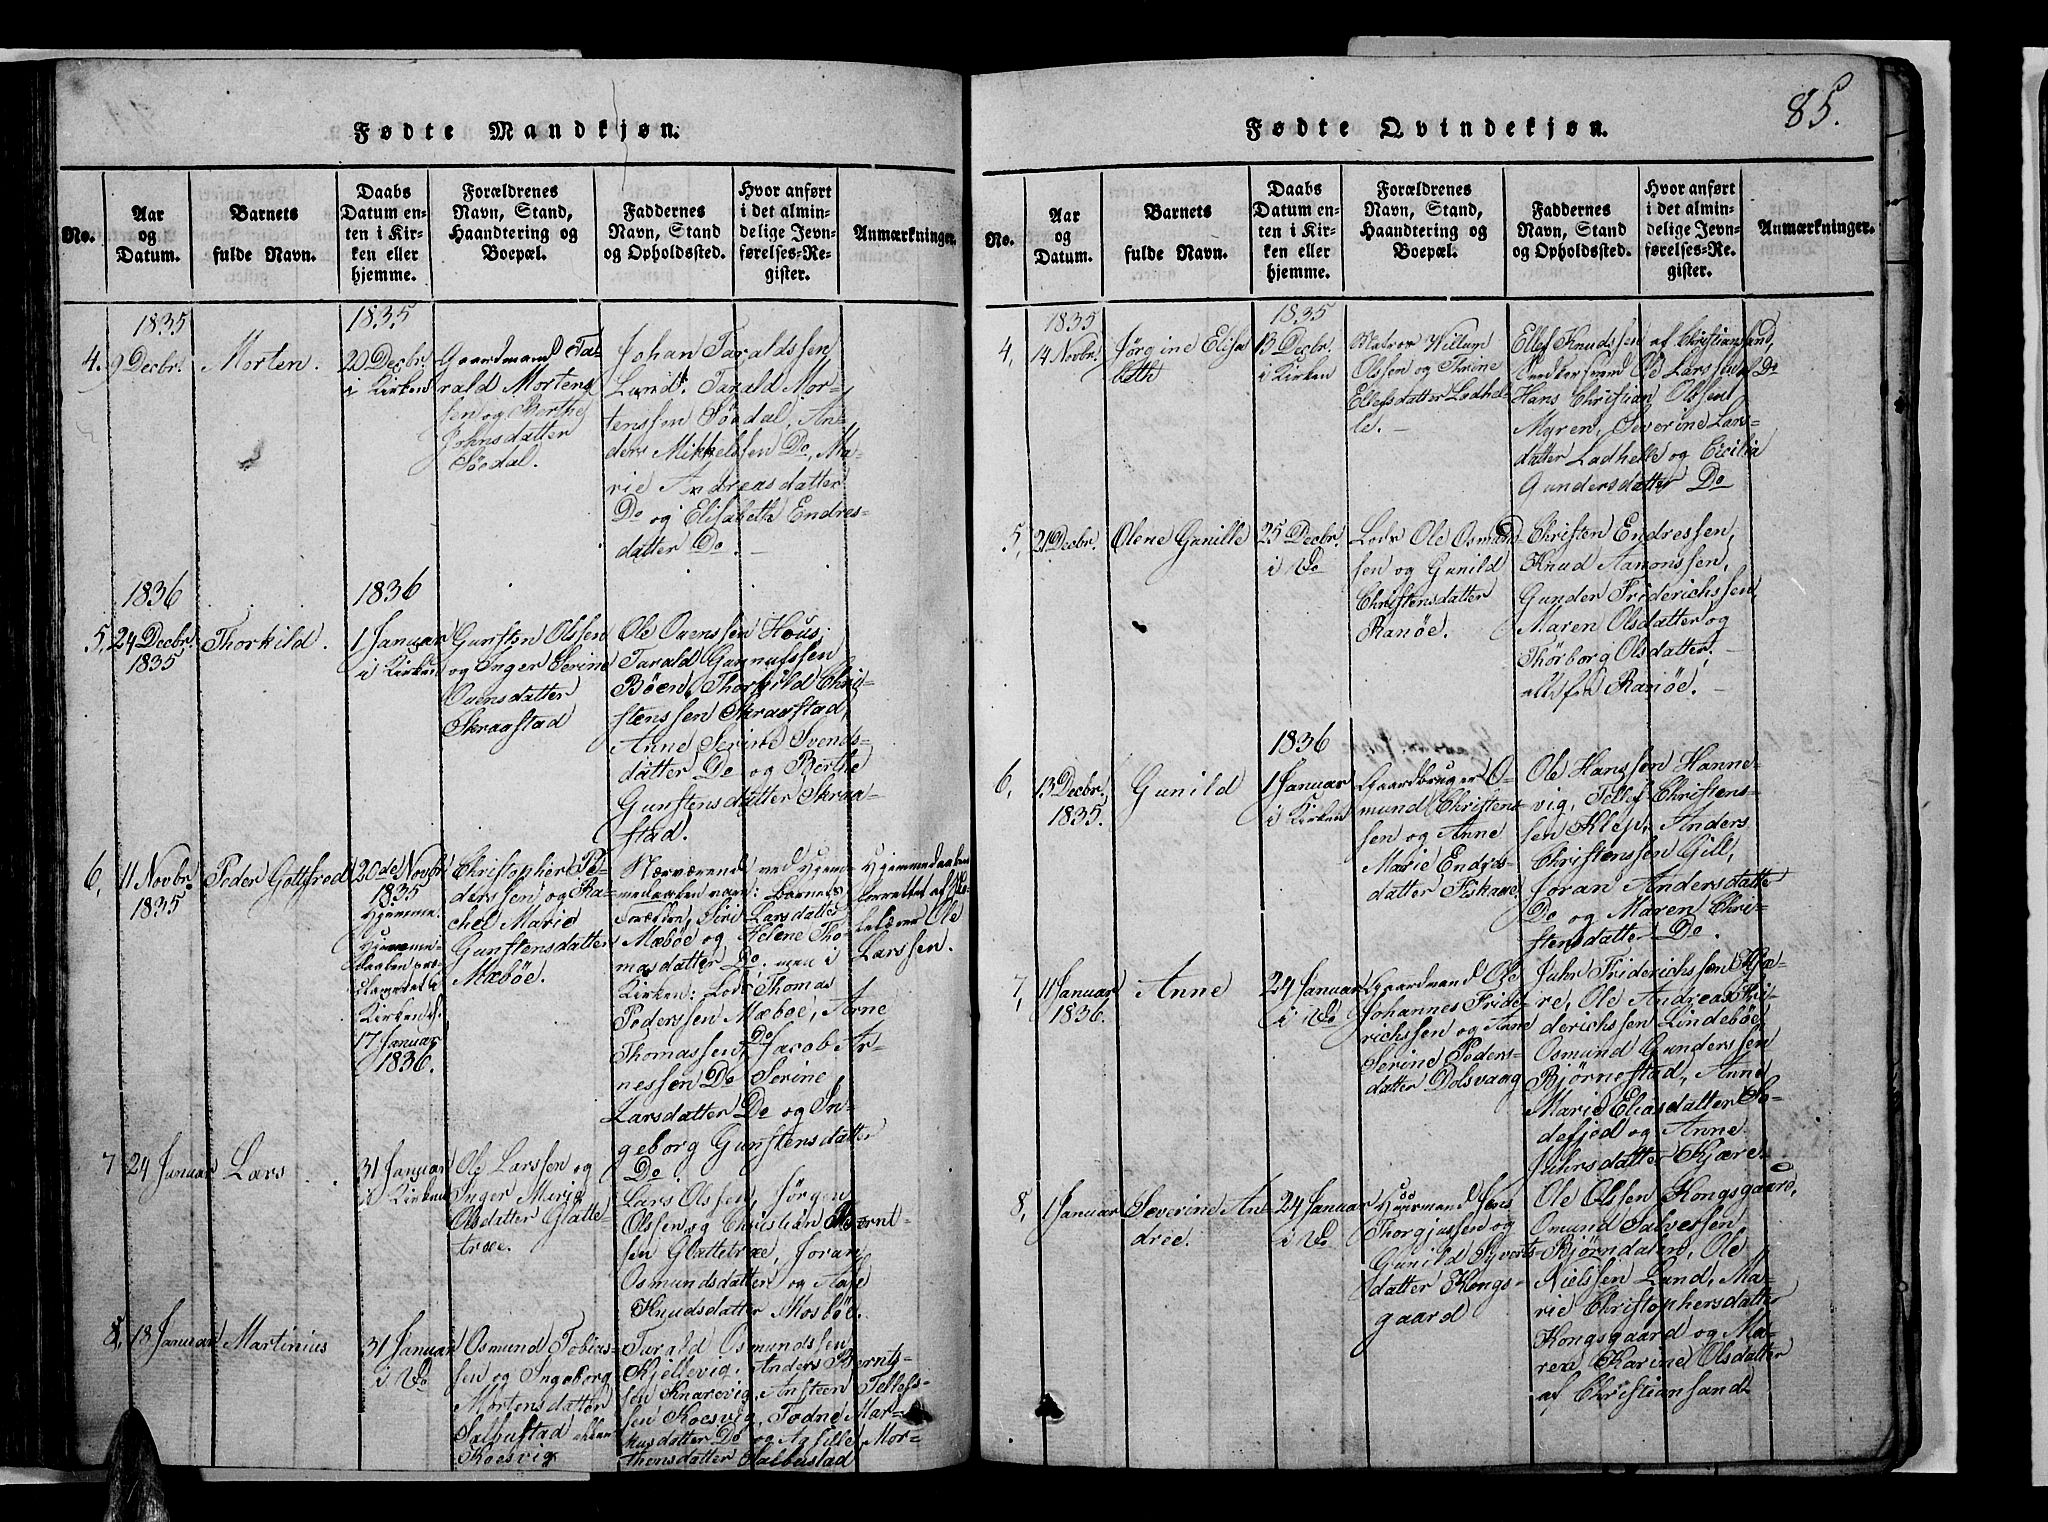 Fødte Mandkjøn.
No.
Aar
og
Datum.
Barnets
fulde Navn.
Daabs
Datum en-
ten i Kir-
ken eller
hjemme.
Forældrenes
Navn, Stand,
Haandtering og
Boepæl.
Faddernes
Navn, Stand
og Opholdssted.
Hvor anført
i det almin-
delige Jevn-
førelses-Re-
gister.
Anmærkninger.
1835
4.
9 Decbr.
Morten.
1835
20 Decbr.
i Kirken
Gaardmand Ta-
rald Mortens
sen og Berthe
Johnsdatter
Söedal.
Johan Taraldssen
Lund, Tarald Mor-
tenssen Söedal, An-
ders Mikkelssen Do, Ma-
rie Andreasdatter
Do og Elisabeth Endres-
datter Do.
1836
5,
24 Decbr.
1835
Thorkild.
1836
1 Januar
i Kirken
Gunsten Olssen
og Inger Serine
Ovensdatter
Skraastad
Ole Ovenssen Hous,
Tarald Gunnufssen
Böen, Thorkild Chri-
stenssen Skraastad,
Anne Serine Svends-
datter Do og Berthe
Gunstensdatter Skraa-
stad.
6,
11 Novbr.
1835
Peder Gottfred
20de Novbr
1835
Hjemme.
Hjemme-
daaben pro-
clameret i
Kirken d.
17 Januar
1836.
Christopher Pe-
derssen og Ra-
chel Marie
Gunstensdatter
Mæböe.
Nærværend ved Hjem-
medaaben vare: Barnets
Forældre, Siri Larsdatter
Mæböe og Helene Tho-
masdatter Do. men i
Kirken: Lods Thomas
Pederssen Mæböe, Arne
Thomassen Do, Jacob Ar-
nessen Do Serine
Larsdatter Do og In-
geborg Gunstensdatter
Do.
Hjemmedaaben
forrettet af
Ole
Larssen.
7
24 Januar
Lars
31 Januar
i Kirken
Ole Larssen og
Inger Marie
Olsdatter Glatte-
træe.
Lars Olssen, Jørgen
Olssen og Christian Bernt-
sen Glattetræe, Joran
Osmundsdatter og Aase
Knudsdatter Mosböe.
8,
18 Januar
Martinius
31 Januar
i Do
Osmund Tobias-
sen og Ingeborg
Mortensdatter
Salbustad
Koesvig
Tarald Osmundssen
Kjellevig, Anders Bernts-
sen Knarevig, Ansteen Tellefs-
sen Koesvig, Todne Mar-
kusdatter Do og Asille Mor-
thensdatter Salbustad
85.
Fødte Qvindekjøn.
No.
Aar
og
Datum.
Barnets
fulde Navn.
Daabs
Datum en-
ten i Kir-
ken eller
hjemme.
Forældrenes
Navn, Stand,
Haandtering og
Boepæl.
Faddernes
Navn, Stand
og Opholdssted.
Hvor anført
i det almin-
delige Jevn-
førelses-Re-
gister.
Anmærkninger.
1835
4,
14 Novbr.
Jørgine Elisa
beth
1835
13 Decbr.
i Kirken
Matros Willum
Olssen og Thrine
Ellefsdatter Ladhel-
le.
Ellef Knudssen af Christiansand,
Ole Larssen Do
Hans Christian Olssen
Myren, Severine Lars-
datter Ladhelle og Cecilia
Gundersdatter Do
5,
21 Decbr.
Olene Gunille
25 Decbr.
i Do
Lods Ole Osmund-
sen og Gunild
Christensdatter
Ranöe.
Christen Endressen,
Knud Aanonssen,
Gunder Friderichssen,
Maren Olsdatter og
Thorborg Olsdatter,
alle fra Ranöe.
6,
13 Decbr.
1835.
Gunild
1836
1 Januar
i Kirken
Gaardbruger O-
smund Christens-
sen og Anne
Marie Endres-
datter Fiskaae
Ole Hanssen Hanne-
vig, Tellef Christens-
sen Klep, Anders
Christenssen Gill,
Joran Andersdatter
Do og Maren Chri-
stensdatter Do.
7,
11 Januar
1836.
Anne
24 Januar
i Do
Gaardmand Ole
Johannes Fride-
richssen og Anne
Serine Peders-
datter Dolsvaag
Juhr Friderichssen Kjæ-
re, Ole Andreas Fri-
derichssen Lindeböe,
Osmund Gunderssen
Bjørnestad, Anne
Marie Eliasdatter So-
defjed og Anne
Juhrsdatter Kjære.
8,
1 Januar
Severine An-
drée.
24 Januar
i Do
Huusmand Jens
Thorgjussen og
Gunild Syverts-
datter Kongs-
gaard
Ole Olssen Kongsgaard,
Osmund Salvessen
Bjørndalen, Ole
Nielssen Lund, Ma-
rie Christophersdatter
Kongsgaard og Ma-
ren Karine Olsdatter
af Christiansand.